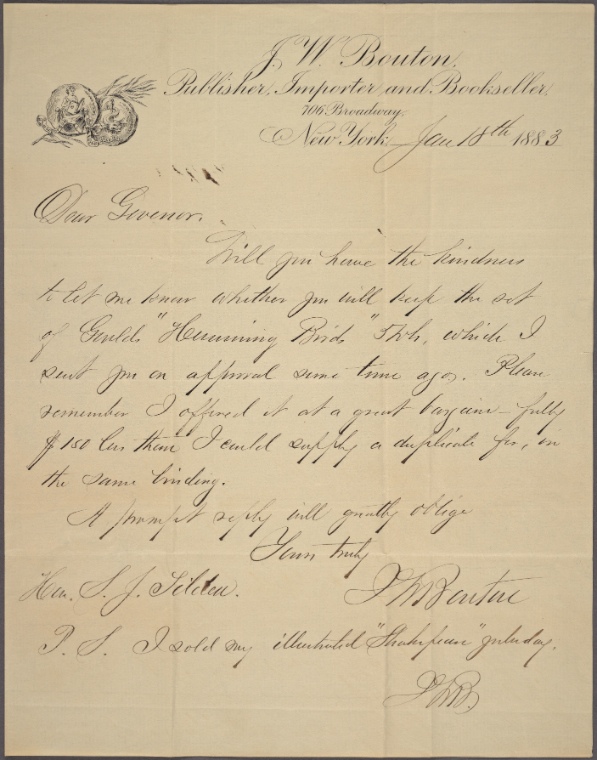 J. W. Bouton,
Publisher, Importer and Bookseller,
706 Broadway,
New York Jan 18th 1883
Dear Govenor,
Will you have the kindness
to let me know whether you will keep the set
of Goulds "Humming Birds" 5 vols, which I
sent you on approval some time ago. Please
remember I offered it at a great bargain – fully
$150 less than I could supply a duplicate for, in
the same binding.
A prompt reply will greatly oblige
Yours truly
Hon. S. J. Tilden.
J W Bouton
P. S. I sold my illustrated "Shakespeare" yesterday.
J W B